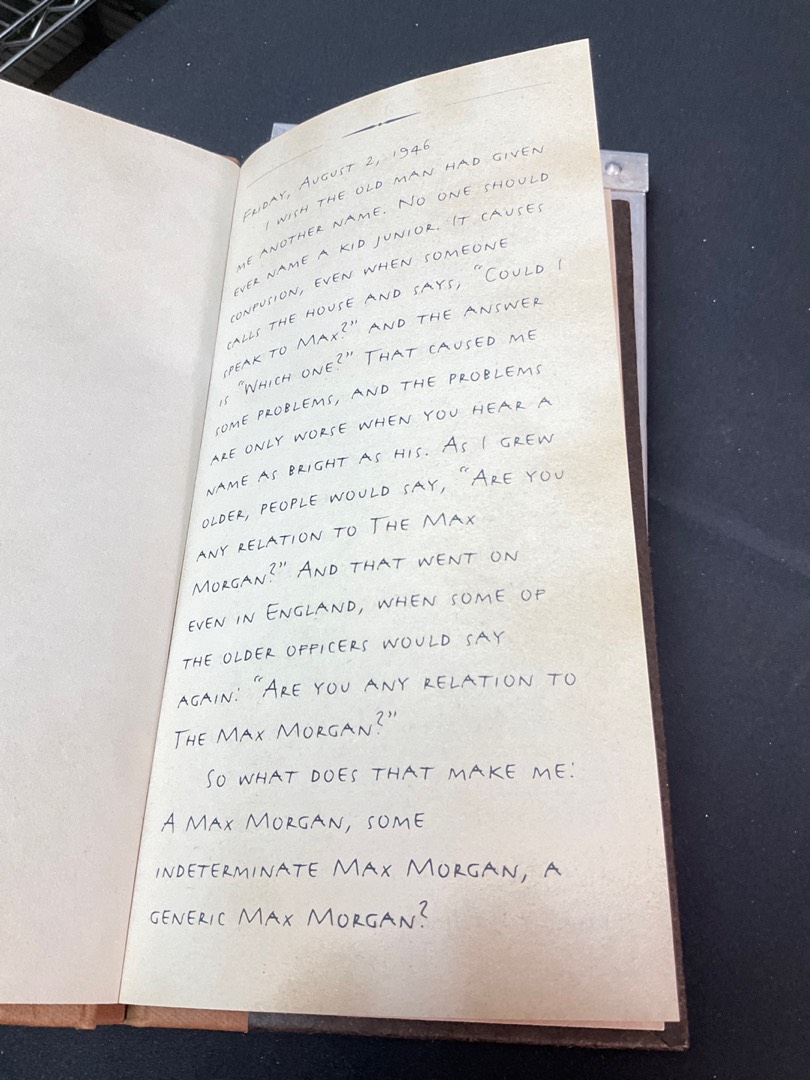 FRIDAY, AUGUST 2, 1946
I WISH THE OLD MAN HAD GIVEN
ME ANOTHER NAME. NO ONE SHOULD
EVER NAME A KID JUNIOR. IT CAUSES
CONFUSION, EVEN WHEN SOMEONE
CALLS THE HOUSE AND SAYS, "COULD I
SPEAK TO MAX?" AND THE ANSWER
IS "WHICH ONE?" THAT CAUSED ME
SOME PROBLEMS, AND THE PROBLEMS
ARE ONLY WORSE WHEN YOU HEAR A
NAME AS BRIGHT AS HIS. AS I GREW
OLDER, PEOPLE WOULD SAY, "ARE YOU
ANY RELATION TO THE MAX
MORGAN?" AND THAT WENT ON
EVEN IN ENGLAND, WHEN SOME OF
THE OLDER OFFICERS WOULD SAY
AGAIN: "ARE YOU ANY RELATION TO
THE MAX MORGAN?"
SO WHAT DOES THAT MAKE ME:
A MAX MORGAN, SOME
INDETERMINATE MAX MORGAN, A
GENERIC MAX MORGAN?